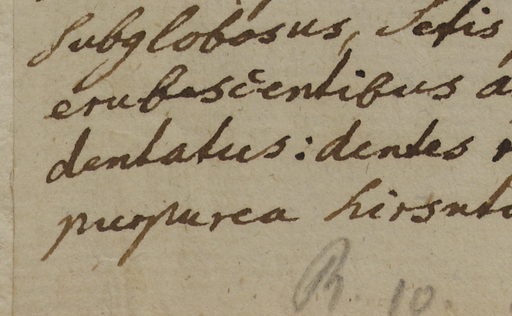 Subglobosus, Setis
erubescentibus a
dentatus: dentes
purpurea hirsut
R. 10.